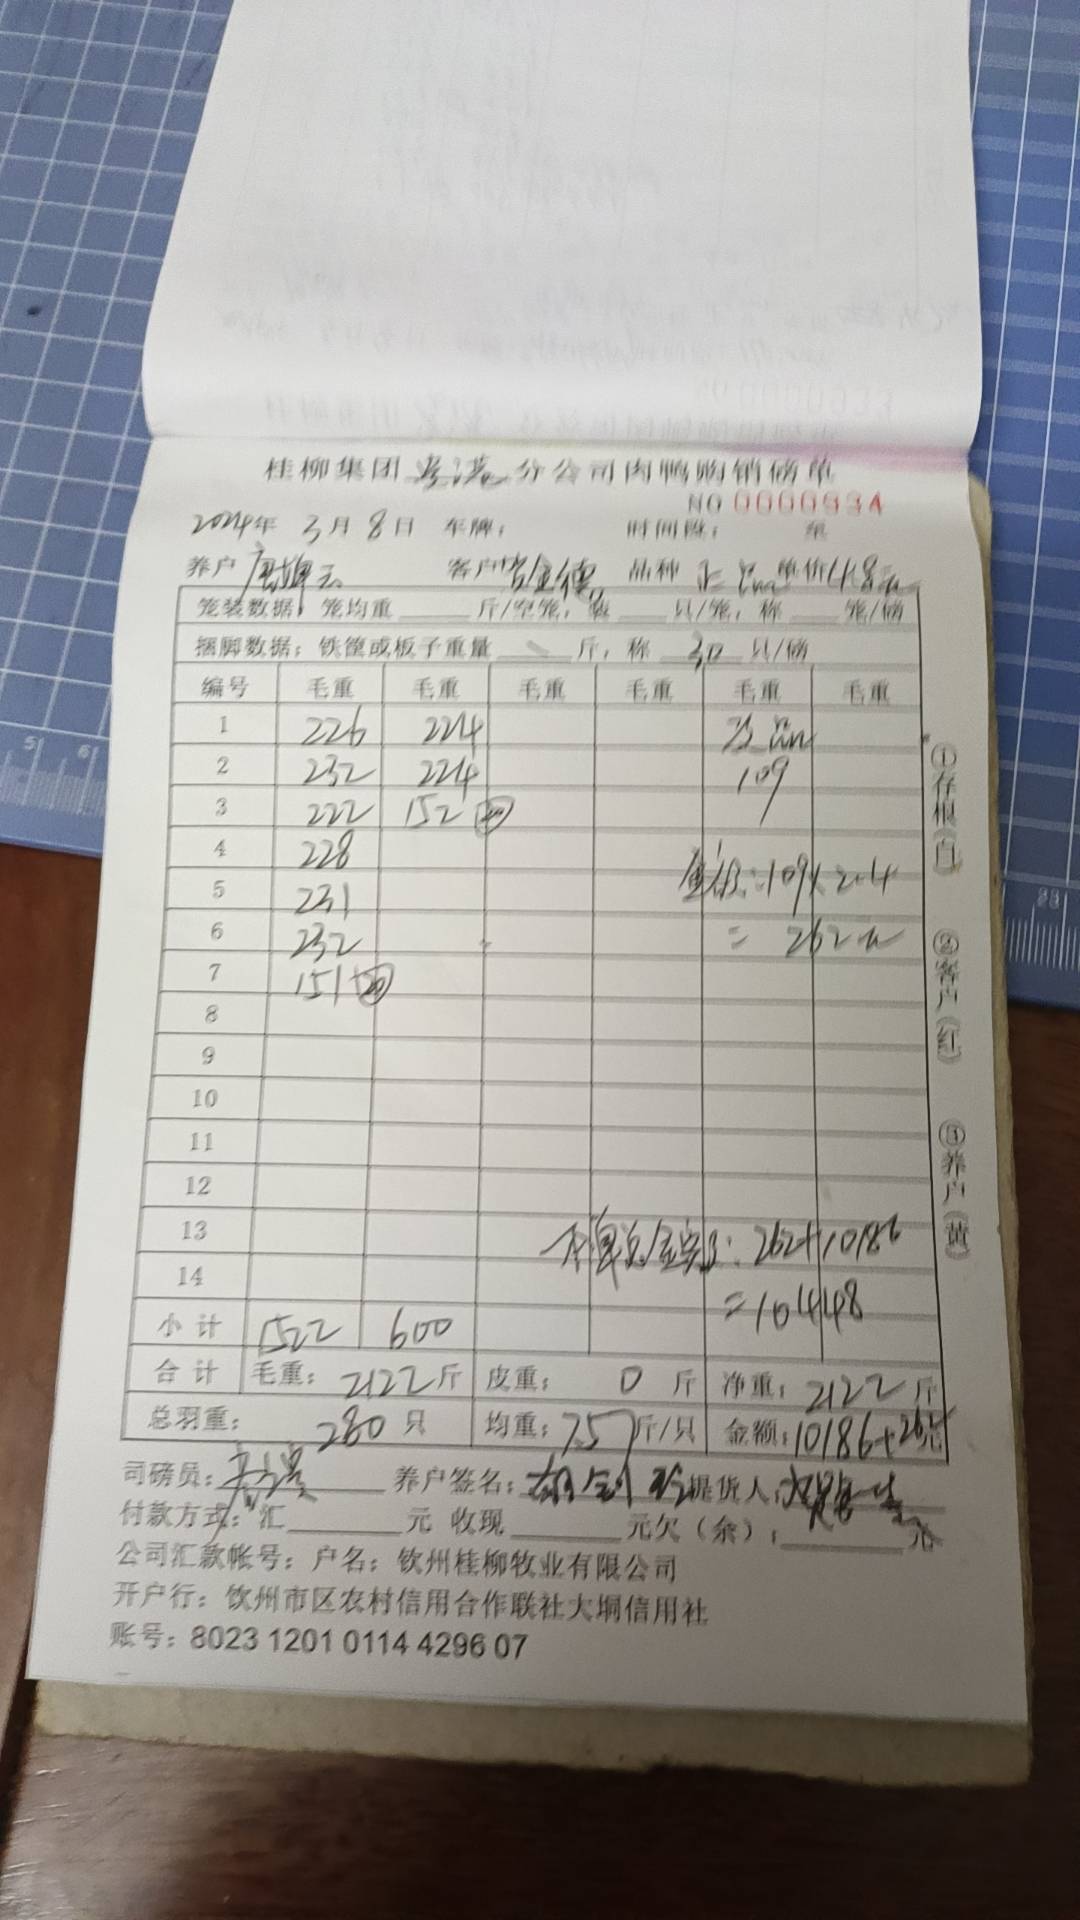 桂柳集团贵港分公司肉鸭购销磅单
NO 0000934
2024年 3月 8日 车牌： 时间段： 至
养户 客户 曾金德 品种 正品 单价 4.8元
笼装数据：笼均重 斤/空笼，装 只/笼，称 笼/磅
捆脚数据：铁筐或板子重量 斤，称 30 只/磅
编号 毛重 毛重 毛重 毛重 毛重 毛重
1 226 224 次品
2 232 224 109
3 222 152 20
4 228
5 231 金额：109×2.4
6 232 = 262元
7 151 20
8
9
10
11
12
13 本单总金额：262+10186
14 =10448
小计 1522 600
合计 毛重：2122斤 皮重：0斤 净重：2122斤
总羽重：280只 均重：7.57斤/只 金额：10186+262元
司磅员： 养户签名： 提货人：
付款方式：汇 元 收现 元欠（余）： 元
公司汇款帐号：户名：钦州桂柳牧业有限公司
开户行：饮州市区农村信用合作联社大垌信用社
账号：8023 1201 0114 4296 07
①存根（白） ②客户（红） ③养户（黄）